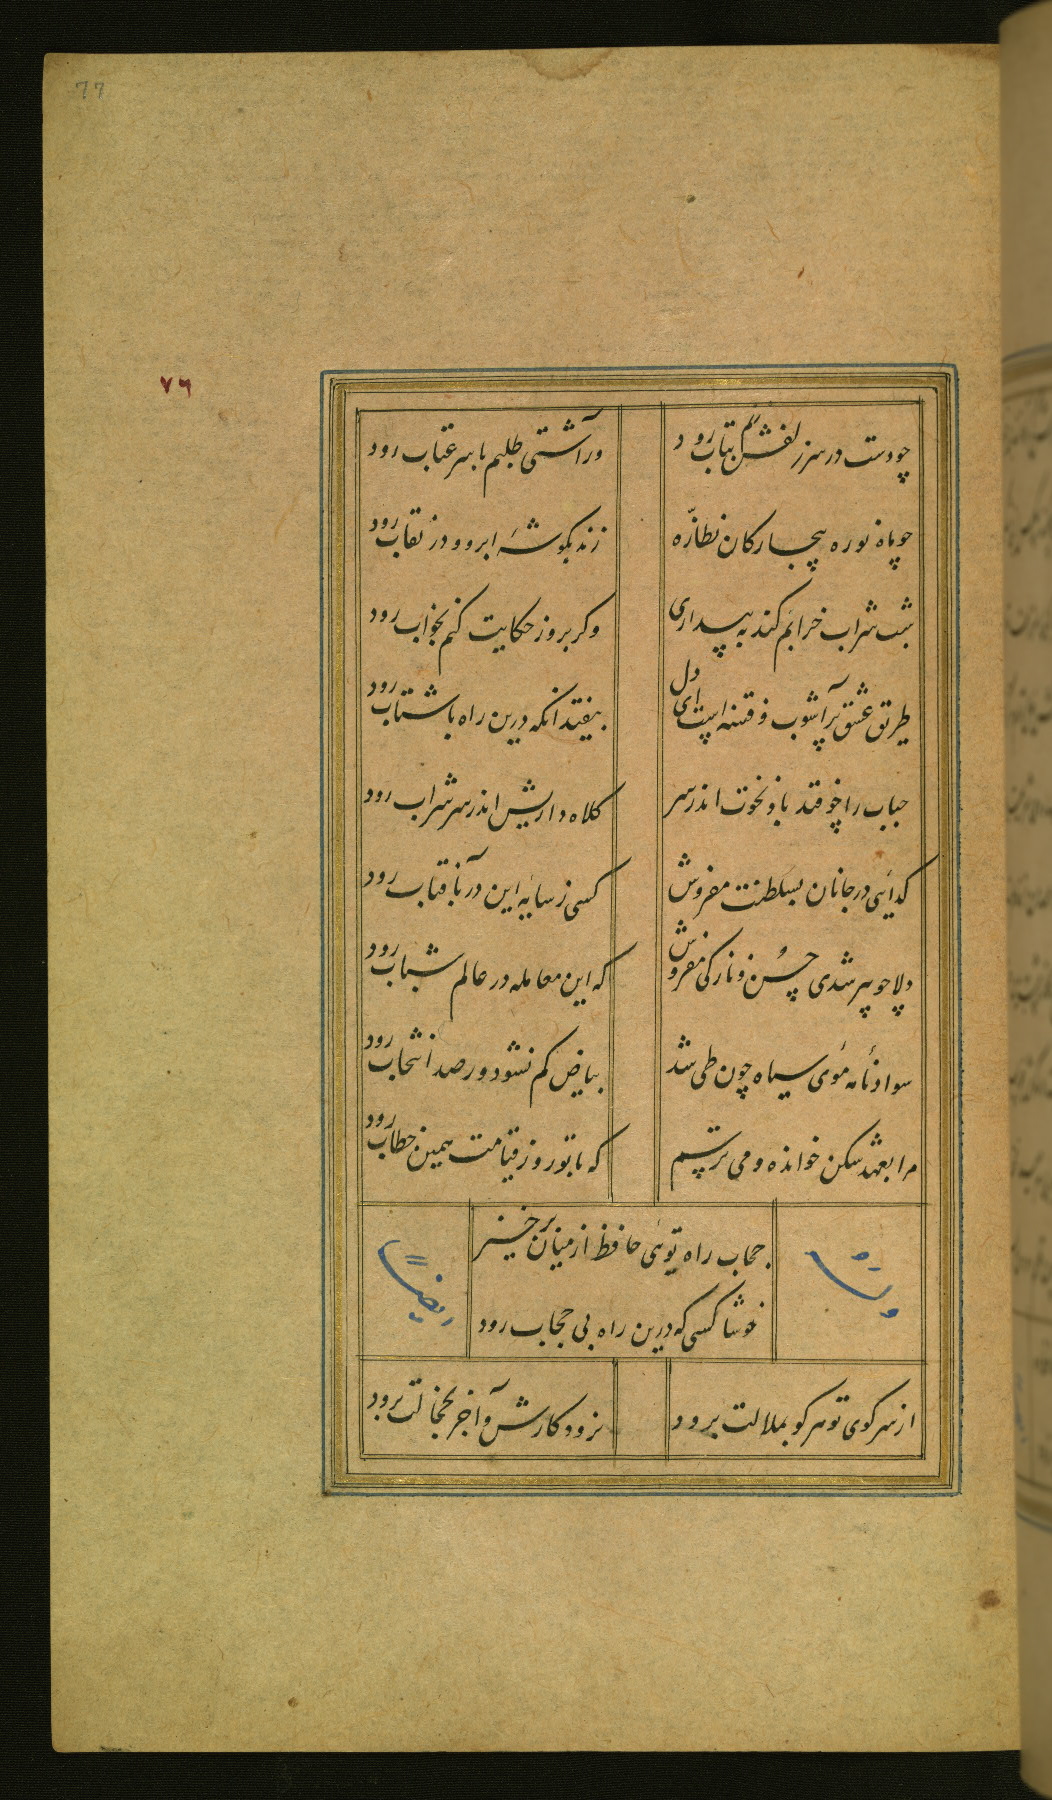 77
۷۶
چو دست در سر زلفش زنم بتاب رود
ور آشتی طلبم با سر عتاب رود
چو ماه نو ره بیچارکان نظاره
زند بکوشهٔ ابرو و در نقاب رود
شب شراب خرابم کند به بیداری
وکر بروز حکایت کنم بخواب رود
طریق عشق پر آشوب و فتنه است ای دل
بیفتد آنکه درین راه با شتاب رود
حباب را چو فتد باد نخوت اندر سر
کلاه داریش اندر سر شراب رود
کدایی در جانان بسلطنت مفروش
کسی ز سایه این در بآفتاب رود
دلا چو پیر شدی حسن و نازکی مفروش
که این معامله در عالم شباب رود
سواد نامه موی سیاه چون طی شد
بیاض کم نشود ور صد انتخاب رود
مرا بعهد شکن خوانده و می ترسم
که با تو روز قیامت همین خطاب رود
حجاب راه توئی حافظ از میان برخیز
خوشا کسی که درین راه بی حجاب رود
وله
ایضاً
از سر کوی تو هر کو بملالت برود
نرود کارش و آخر بخجالت برود